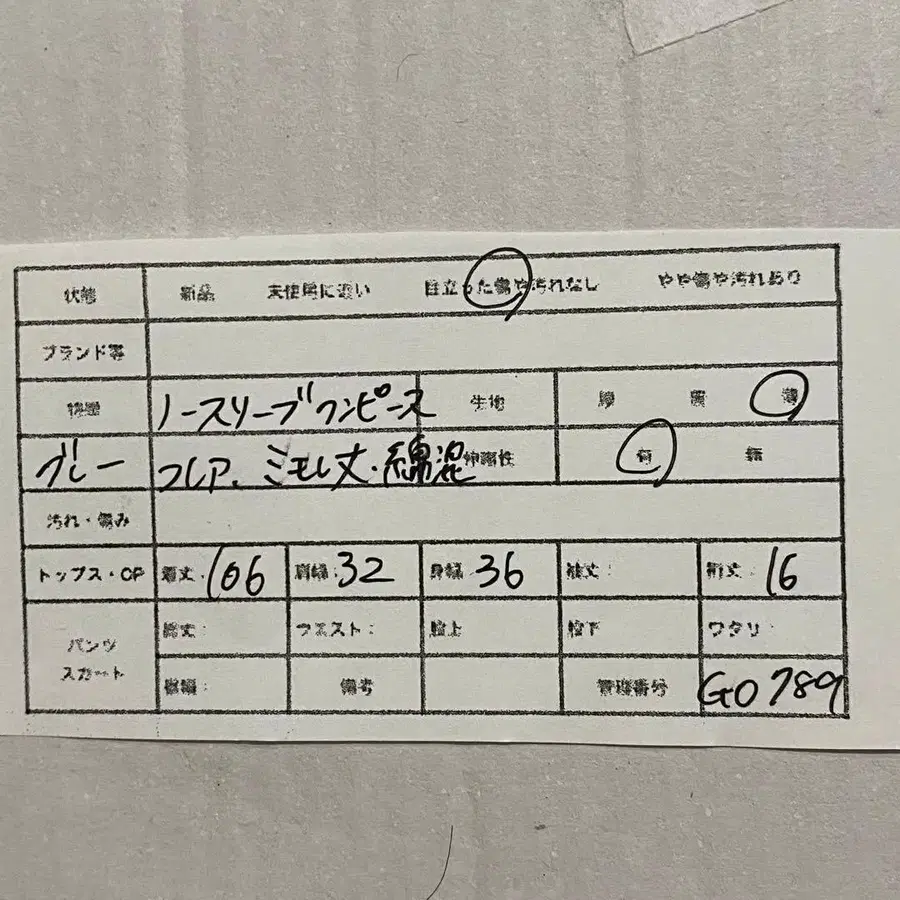 状態 新品 未使用に近い 目立った傷や汚れなし やや傷や汚れあり
ブランド等
特徴 ノースリーブワンピース 生地 厚 普 薄
グレー フレア、ミモレ丈・綿混 伸縮性 有 無
汚れ・傷み
トップス・OP 着丈: 106 肩幅: 32 身幅: 36 袖丈: 裄丈: 16
パンツ スカート 総丈: ウエスト: 股上 股下 ワタリ:
裾幅: 備考 管理番号 GO789